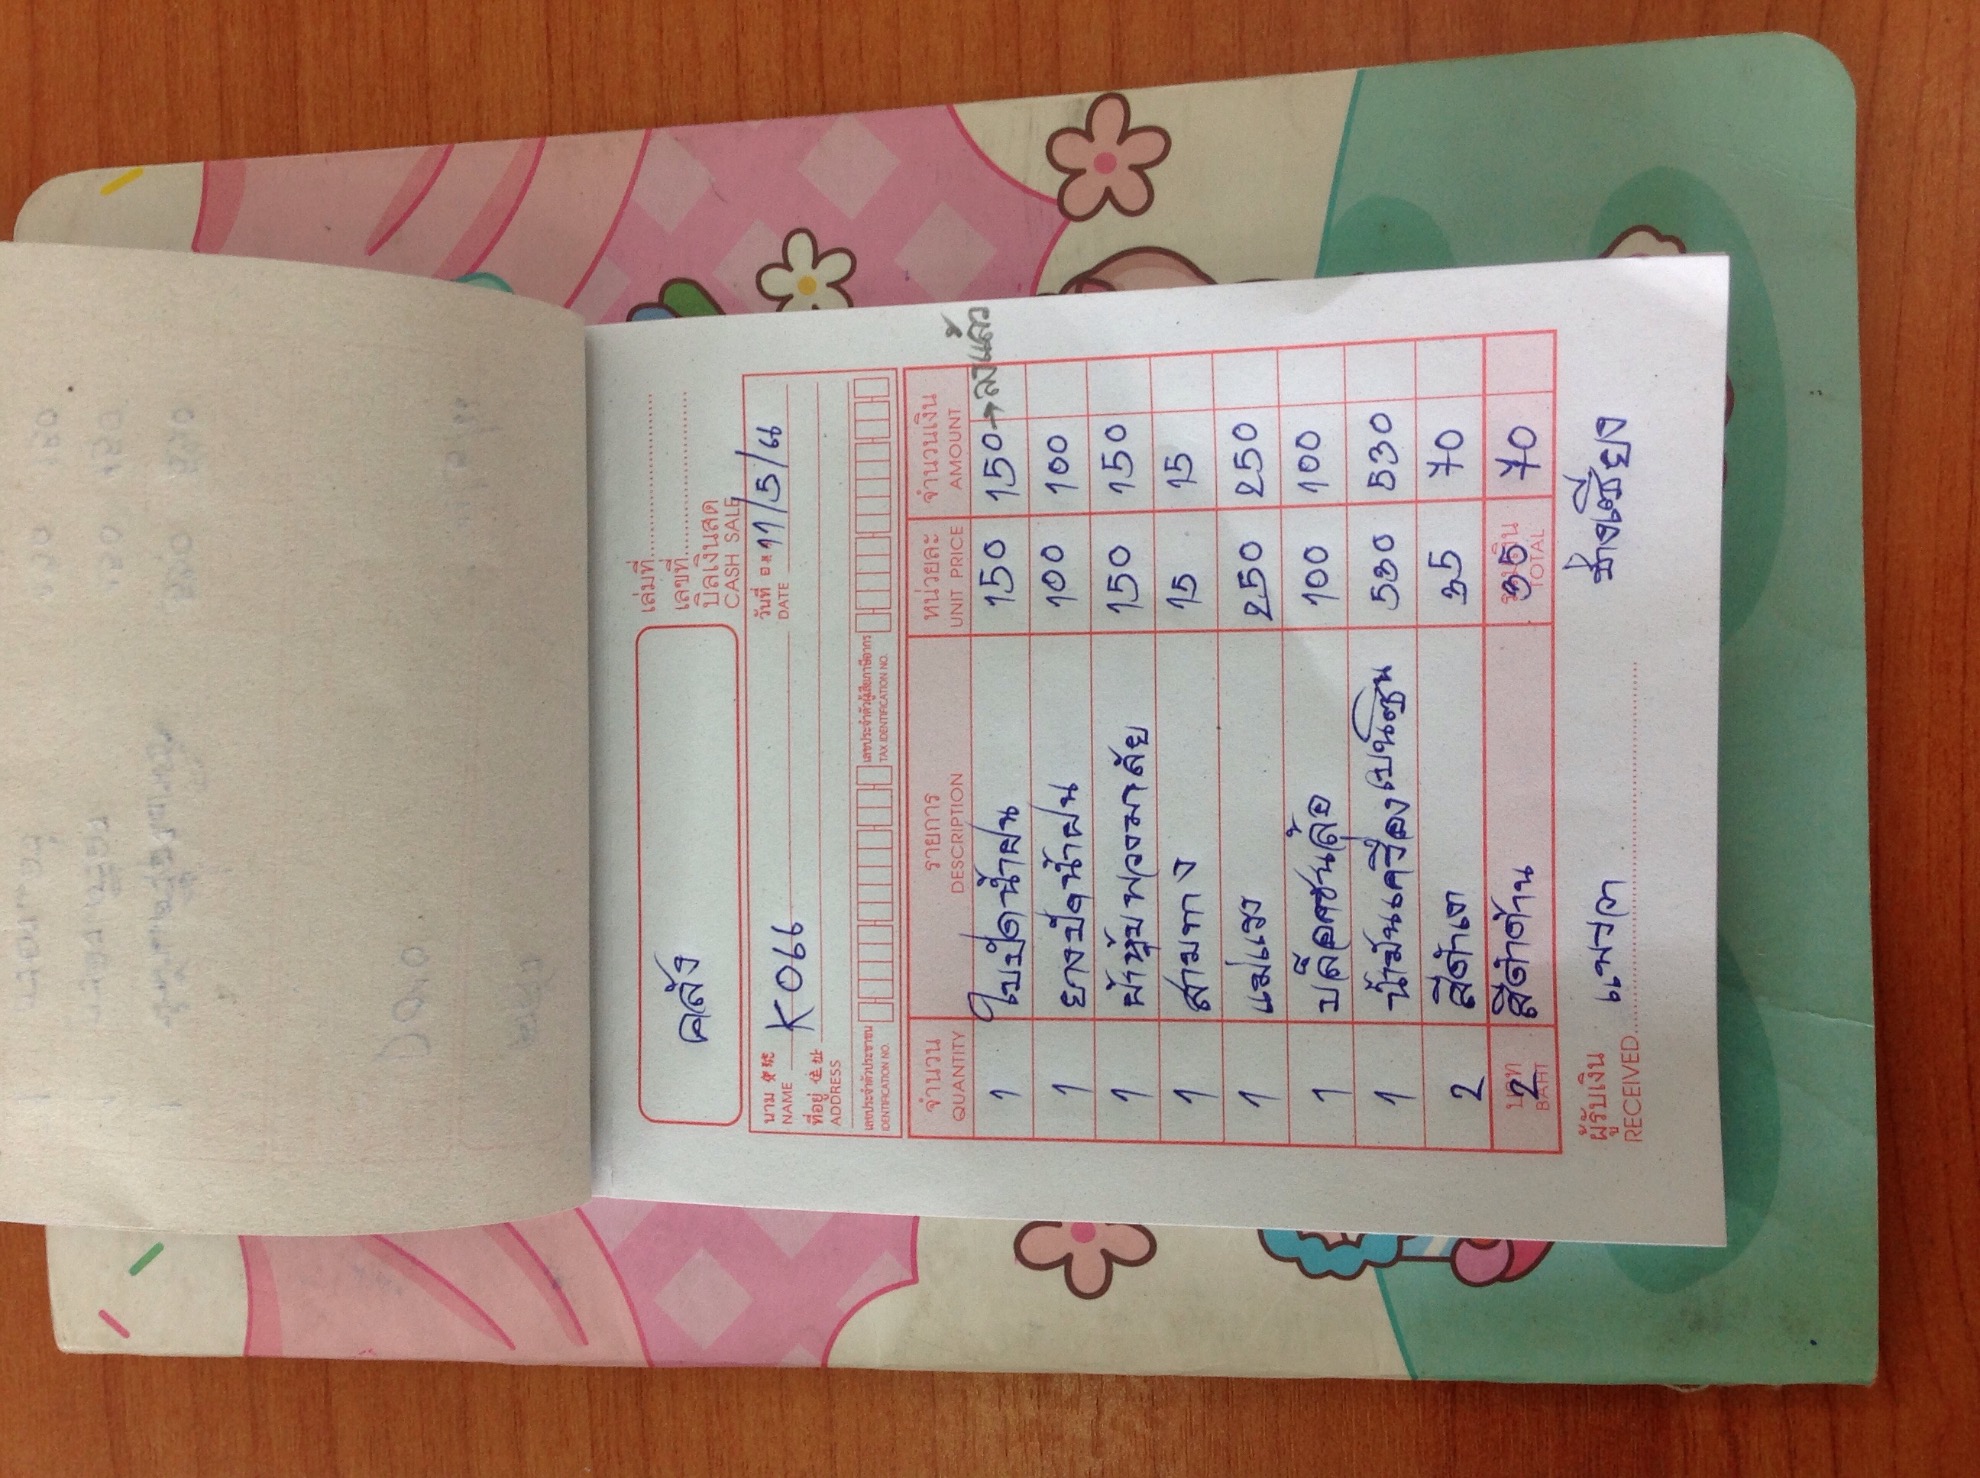 เล่มที่
เลขที่
คลัง
บิลเงินสด
CASH SALE
นาม K066 วันที่ 11/5/น
NAME DATE
ที่อยู่
ADDRESS
เลขประจำตัวประชาชน เลขประจำตัวผู้เสียภาษีอากร
IDENTIFICATION NO. TAX IDENTIFICATION NO.
จำนวน รายการ หน่วยละ จำนวนเงิน
QUANTITY DESCRIPTION UNIT PRICE AMOUNT
1 ใบปัดน้ำฝน 150 150 → ลงแล้ว
1 ยางปัดน้ำฝน 100 100
1 ผ้าหุ้มพวงมาลัย 150 150
1 สามทาง 15 15
1 แม่แรง 250 250
1 บล็อคขันล้อ 100 100
1 น้ำมันเครื่องเบนซิน 530 530
2 สีดำเงา 35 70
2 สีดำด้าน 35 70
บาท รวมเงิน
BAHT TOTAL
ผู้รับเงิน แพรวา ช่างเตี่ยง
RECEIVED